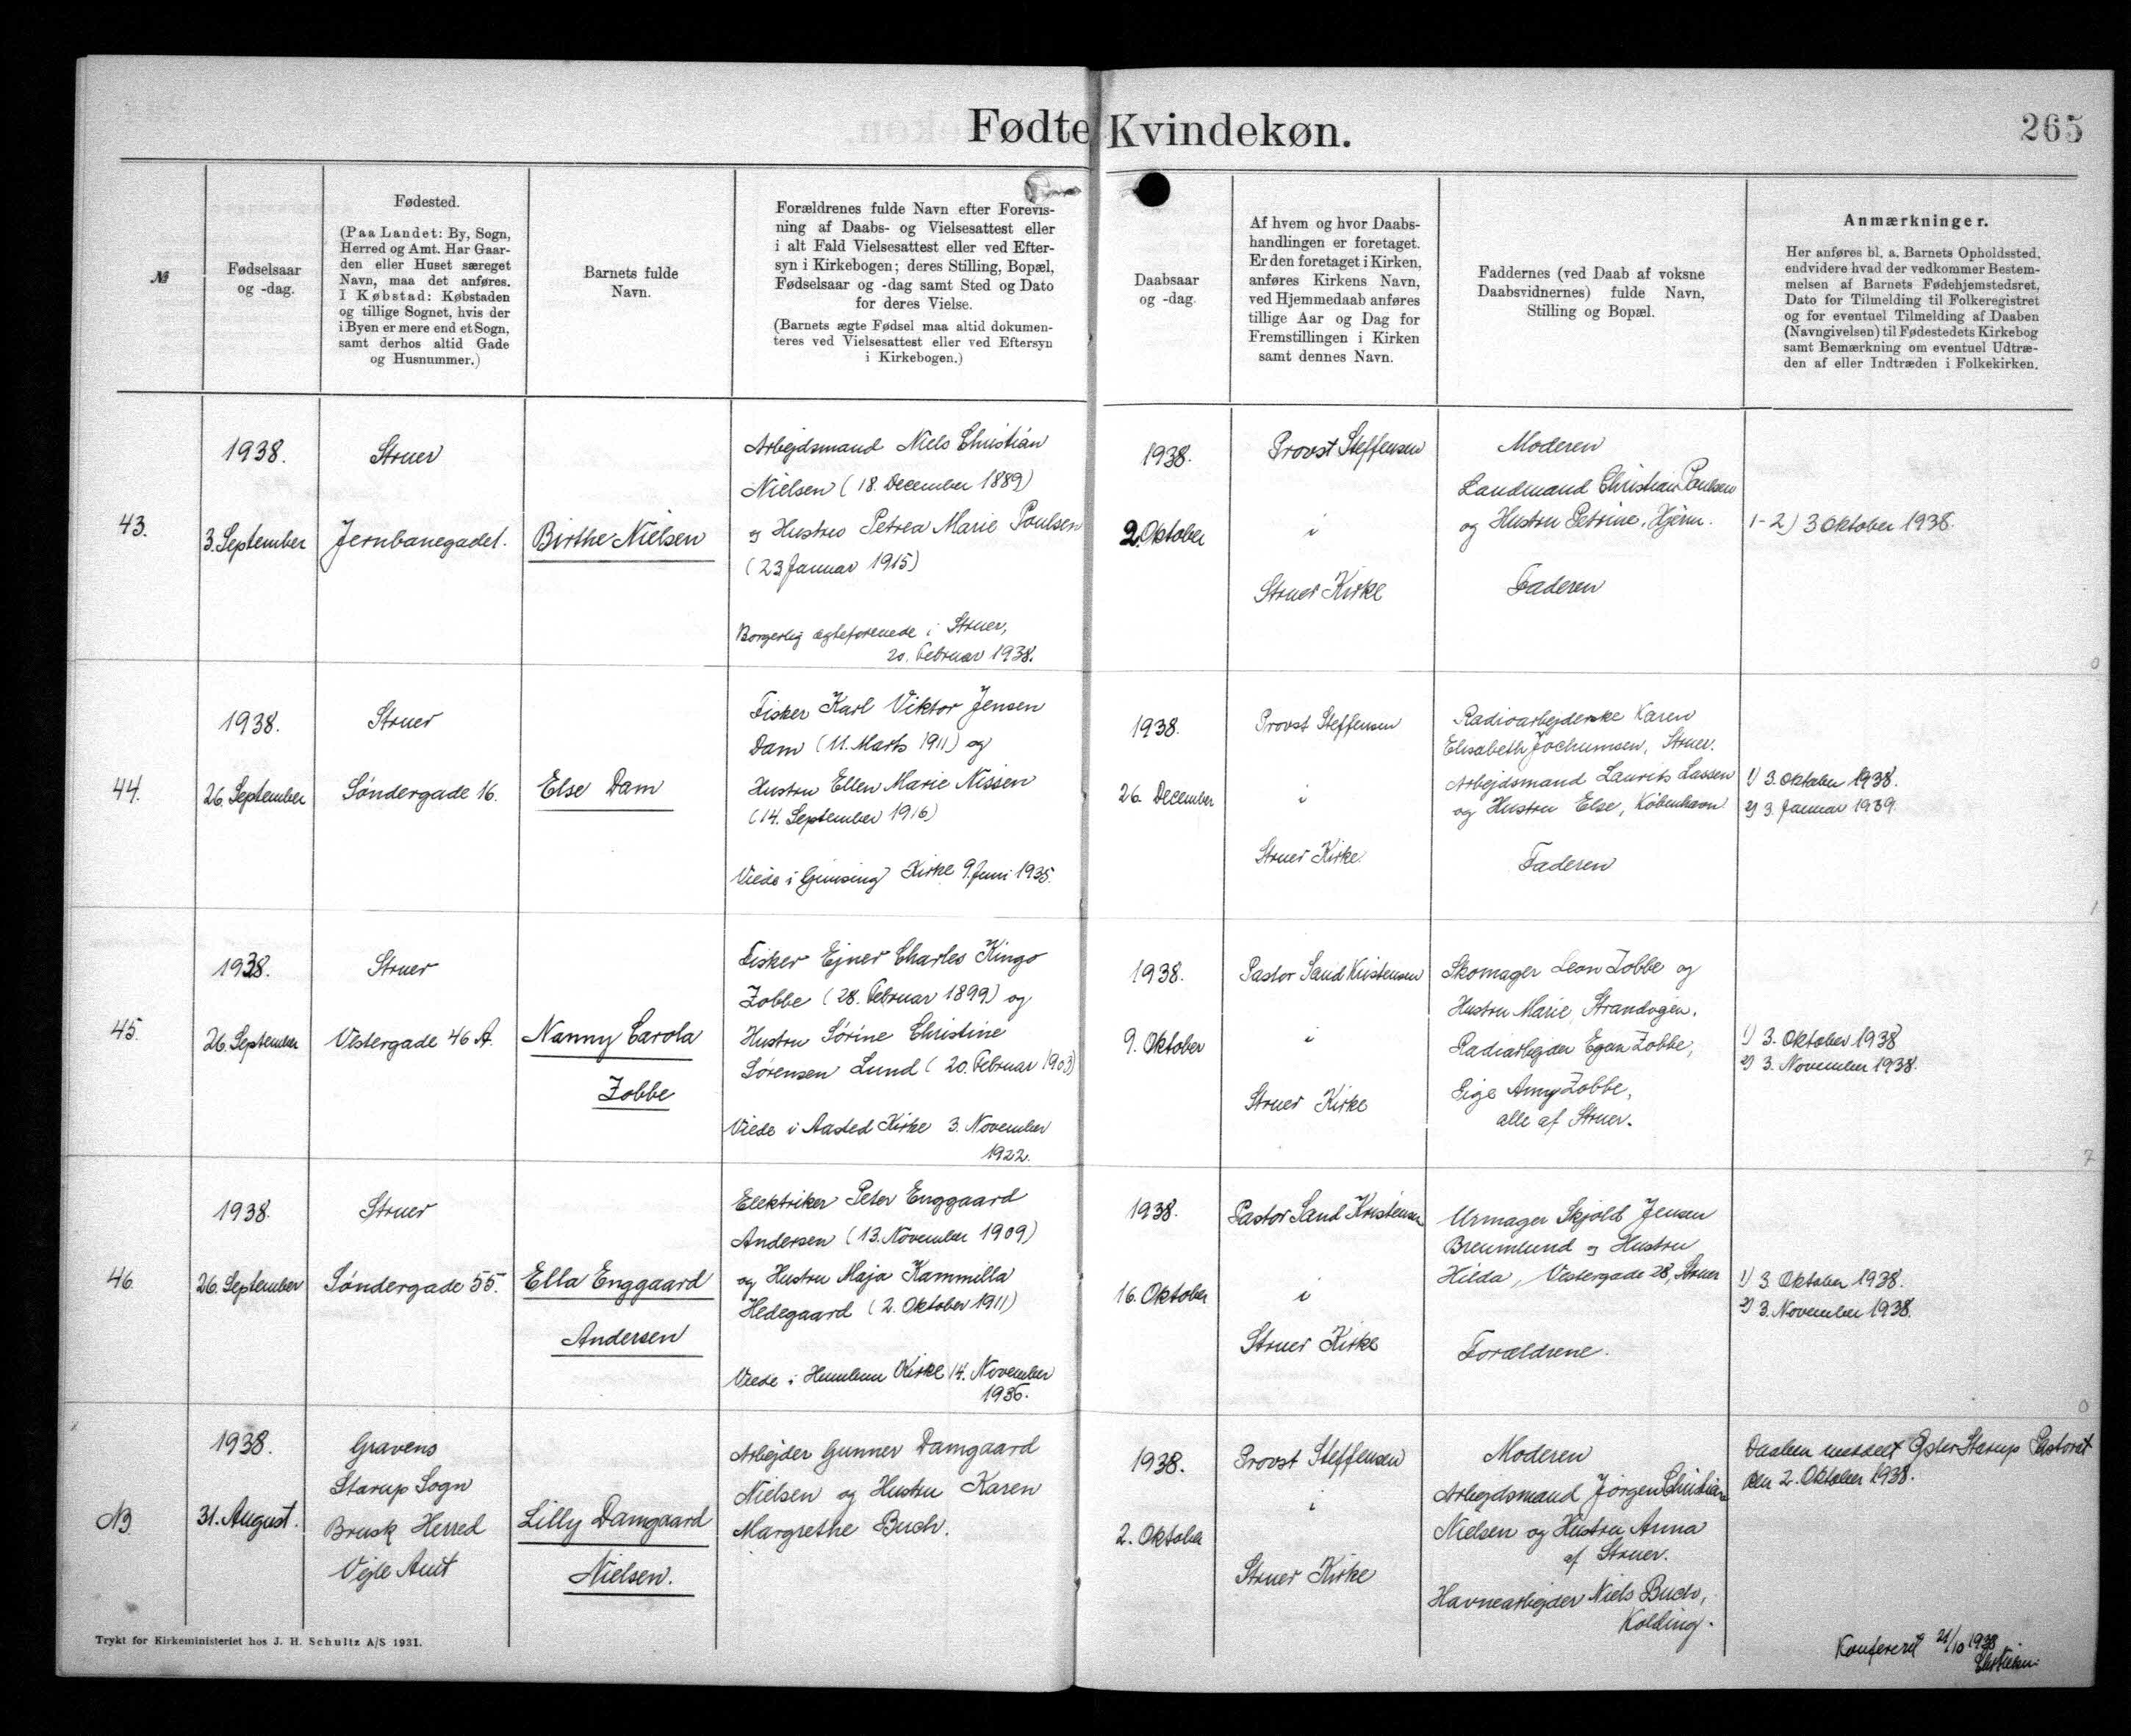 Fødte Kvindekøn.
265
№
Fødselsaar
og -dag.
Fødested.
(Paa Landet: By, Sogn,
Herred og Amt. Har Gaar-
den eller Huset særeget
Navn, maa det anføres.
I Købstad: Købstaden
og tillige Sognet, hvis der
i Byen er mere end et Sogn,
samt derhos altid Gade
og Husnummer.)
Barnets fulde
Navn.
Forældrenes fulde Navn efter Forevis-
ning af Daabs- og Vielsesattest eller
i alt Fald Vielsesattest eller ved Efter-
syn i Kirkebogen; deres Stilling, Bopæl,
Fødselsaar og -dag samt Sted og Dato
for deres Vielse.
(Barnets ægte Fødsel maa altid dokumen-
teres ved Vielsesattest eller ved Eftersyn
i Kirkebogen.)
Daabsaar
og -dag.
Af hvem og hvor Daabs-
handlingen er foretaget.
Er den foretaget i Kirken,
anføres Kirkens Navn,
ved Hjemmedaab anføres
tillige Aar og Dag for
Fremstillingen i Kirken
samt dennes Navn.
Faddernes (ved Daab af voksne
Daabsvidnernes) fulde Navn,
Stilling og Bopæl.
Anmærkninger.
Her anføres bl. a. Barnets Opholdssted,
endvidere hvad der vedkommer Bestem-
melsen af Barnets Fødehjemstedsret,
Dato for Tilmelding til Folkeregistret
og for eventuel Tilmelding af Daaben
(Navngivelsen) til Fødestedets Kirkebog
samt Bemærkning om eventuel Udtræ-
den af eller Indtræden i Folkekirken.
43.
1938.
3. September
Struer
Jernbanegade1.
Birthe Nielsen
Arbejdsmand Niels Christian
Nielsen (18. December 1889)
og Hustru Petrea Marie Poulsen
(23 Januar 1915)
Borgerlig ægteforenede i Struer,
20. Februar 1938.
1938.
2. Oktober
Provst Steffensen
i
Struer Kirke
Moderen
Landmand Christian Poulsen
og Hustru Petrine, Hjerm.
Faderen
1-2) 3 Oktober 1938.
44.
1938.
26. September
Struer
Søndergade 16.
Else Dam
Fisker Karl Viktor Jensen
Dam (11. Marts 1911) og
Hustru Ellen Marie Nissen
(14. September 1916)
Viede i Gimsing Kirke 9. Juni 1935.
1938.
26. December
Provst Steffensen
i
Struer Kirke.
Radioarbejderske Karen
Elisabeth Jochumsen, Struer.
Arbejdsmand Laurits Lassen
og Hustru Else, København
Faderen
1) 3. Oktober 1938.
2) 3. Januar 1939.
45.
1938.
26. September
Struer
Vestergade 46 A.
Nanny Carola
Zobbe
Fisker Ejner Charles Kingo
Zobbe (28. Februar 1899) og
Hustru Sørine Christine
Sørensen Lund (20. Februar 1903)
Viede i Aasted Kirke 3. November
1922.
1938.
9. Oktober
Pastor Sand Kristensen
i
Struer Kirke
Skomager Leon Zobbe og
Hustru Marie, Strandvejen.
Radioarbejder Egon Zobbe,
Pige Anny Zobbe,
alle af Struer.
1) 3. Oktober 1938
2) 3. November 1938.
46.
1938.
26. September
Struer
Søndergade 55.
Ella Enggaard
Andersen
Elektriker Peter Enggaard
Andersen (13. November 1909)
og Hustru Maja Kammilla
Hedegaard (2. Oktober 1911)
Viede i Kirke 14. November
1936.
1938.
16. Oktober
Pastor Sand Kristensen
i
Struer Kirke
Urmager Skjold Jensen
Bremlund og Hustru
Hilda, Vestergade 28, Struer
Forældrene.
1) 3. Oktober 1938.
2) 3. November 1938.
NB
1938.
31. August.
Gravens
Starup Sogn
Brusk Herred
Vejle Amt
Lilly Damgaard
Nielsen.
Arbejder Gunner Damgaard
Nielsen og Hustru Karen
Margrethe Buch.
1938.
2. Oktober
Provst Steffensen
i
Struer Kirke
Moderen
Arbejdsmand Jørgen Christian
Nielsen og Hustru Anna
af Struer.
Havnearbejder Niels Buch,
Kolding.
Daaben meddelt Øster Starup Pastorat
den 2. Oktober 1938.
Trykt for Kirkeministeriet hos J. H. Schultz A/S 1931.
Konfereret 21/10 1938